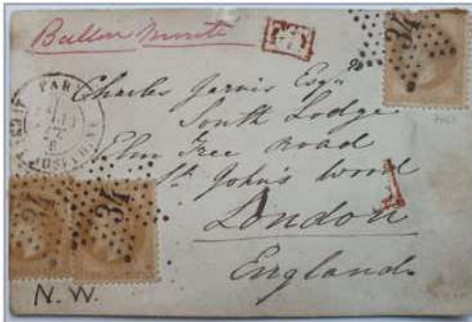 Ballon Monté
PD
34
PAR
Charles Jarvis Esqre
South Lodge
Elm Tree Road
St John's Wood
London
England
34
34
N.W.